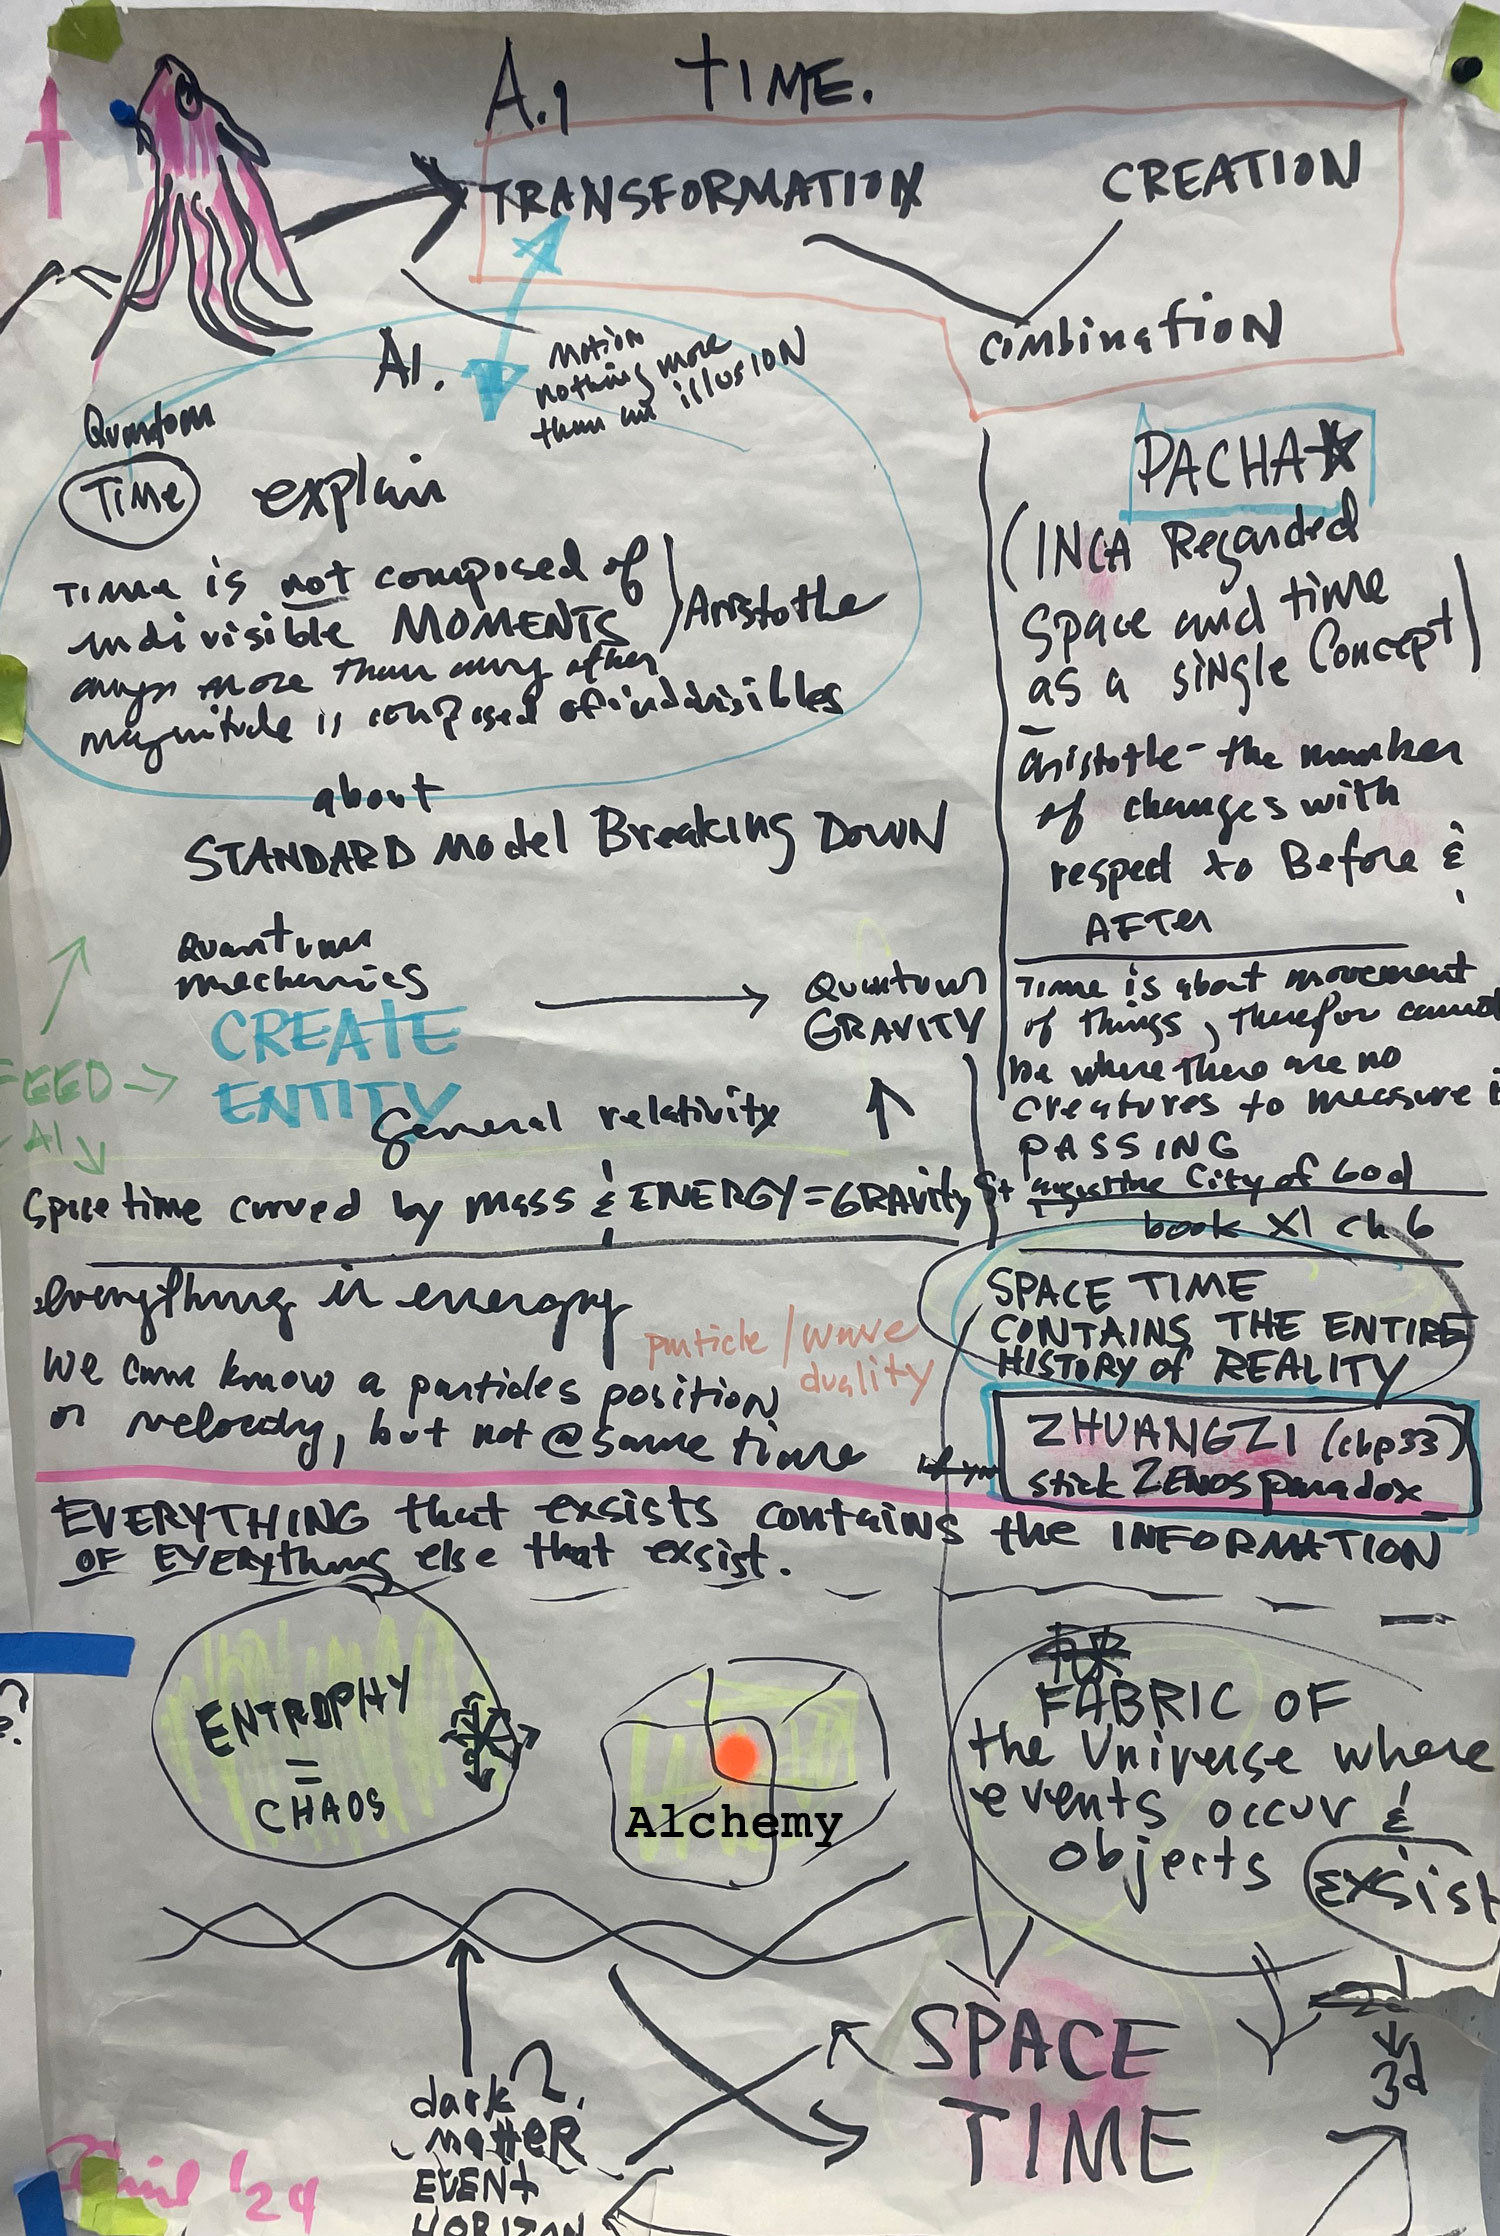 A.1 TIME.
TRANSFORMATION
CREATION
COMBINATION
A1.
Motion
nothing more
than an illusion
Quantom
Time explain
Time is not composed of
indivisible MOMENTS
any more than any other
magnitude is composed of indivisibles
Aristotle
about
STANDARD Model Breaking Down
Quantum
mechanics
CREATE
ENTITY
Quantum
GRAVITY
FEED
AI
General relativity
Space time curved by mass & ENERGY = GRAVITY
PACHA
(INCA Regarded
Space and time
as a single Concept)
Aristotle - the number
of changes with
respect to Before &
AFTER
Time is about movement
of things, therefor cannot
be where there are no
creatures to measure i
PASSING
St augustine City of God
book XI ch 6
SPACE TIME
CONTAINS THE ENTIRE
HISTORY of REALITY
ZHUANGZI (chp33)
stick ZENOS paradox
everything is energy
particle / wave
duality
We can know a particles position
or velocity, but not @ same time
EVERYTHING that exsists contains the INFORMATION
OF EVERYthing else that exsist.
ENTROPHY
=
CHAOS
Alchemy
FABRIC OF
the Universe where
events occur &
objects exsist
SPACE
TIME
2d
3d
dark ?
matter
EVENT
HORIZAN
April '24